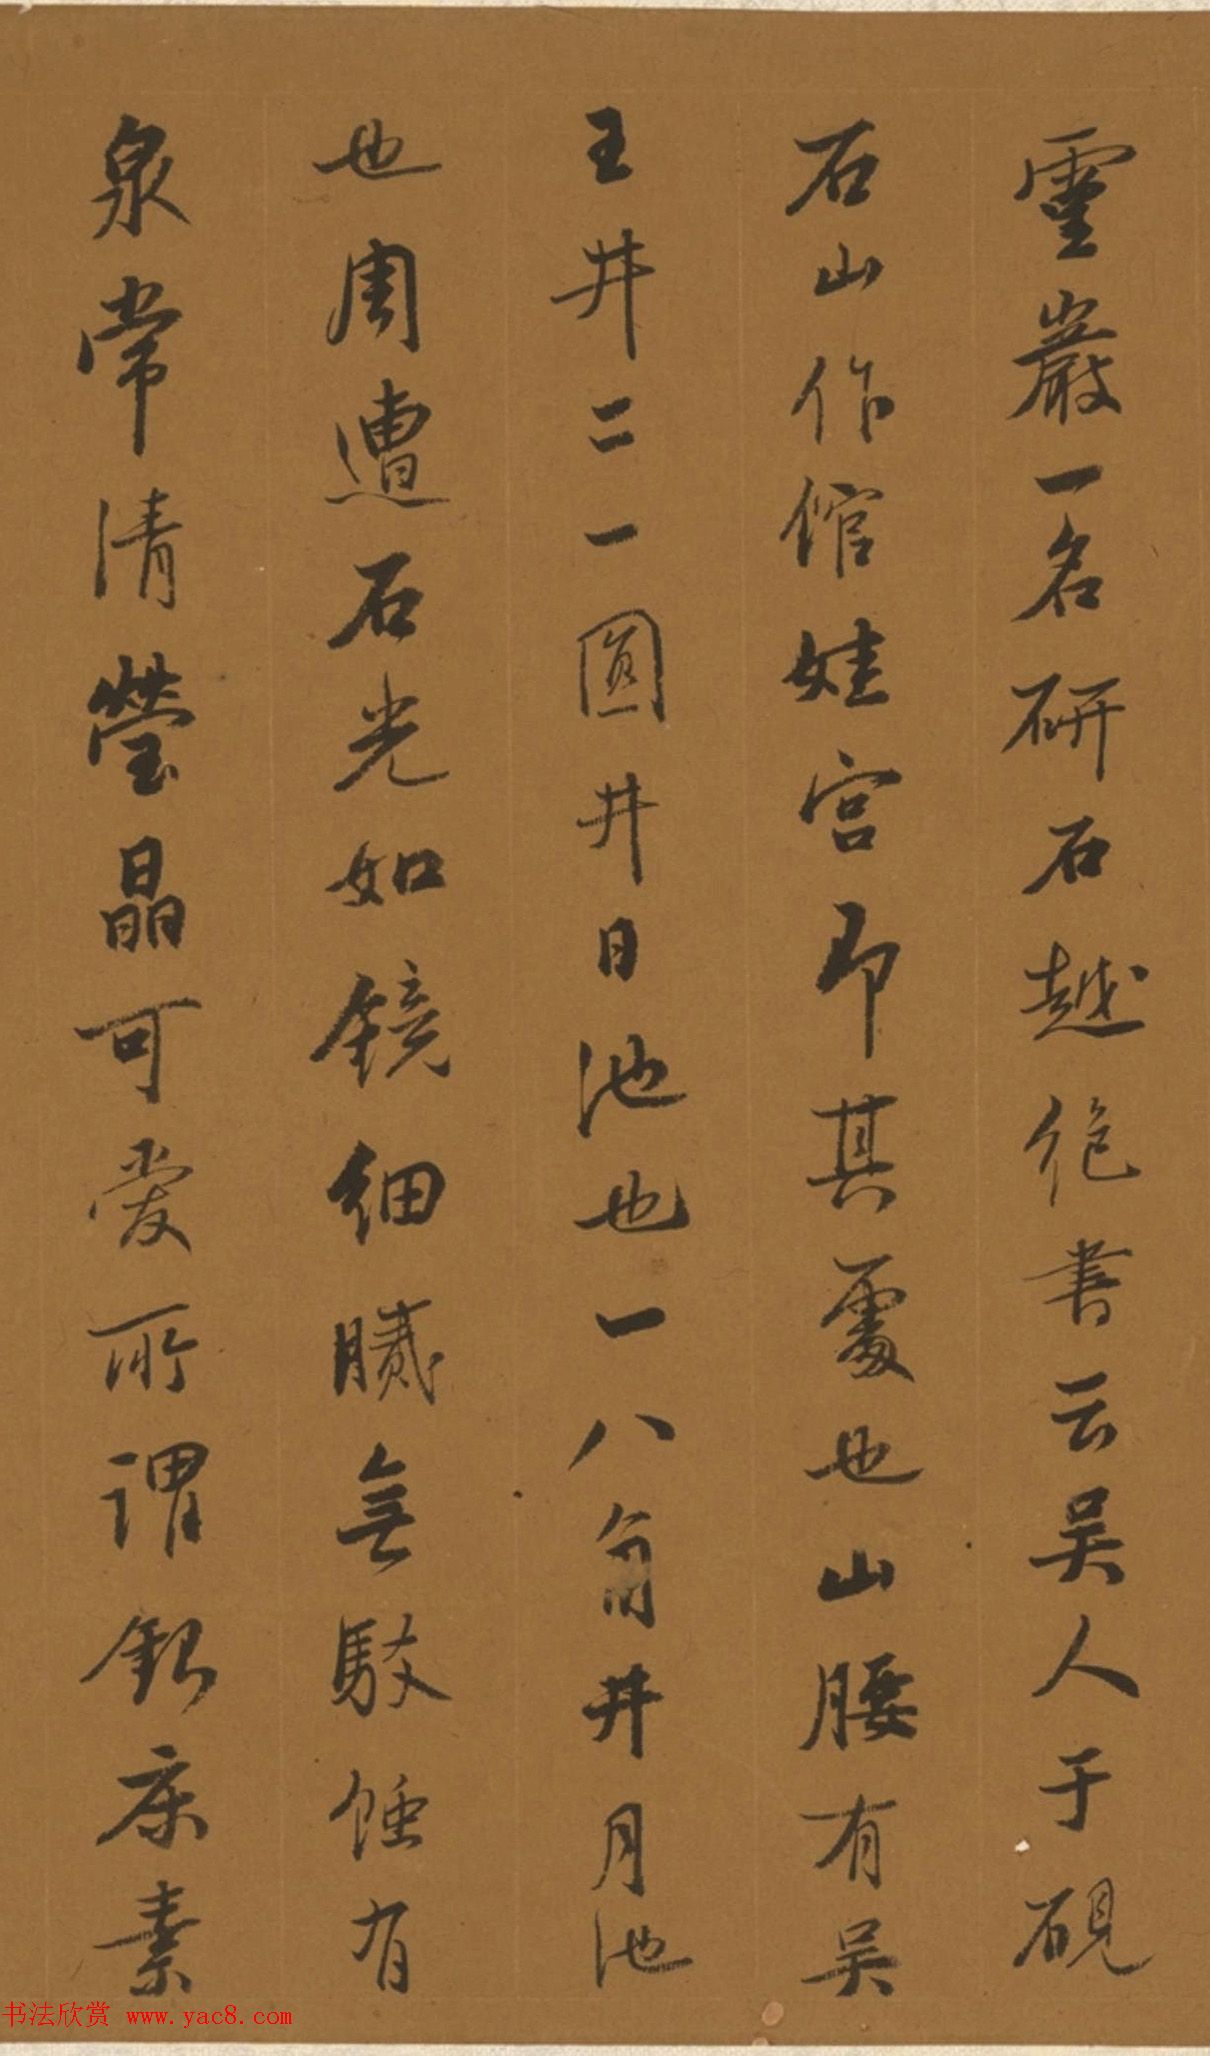 靈巖一名研石越絕書云吳人于硯
石山作館娃宮即其處也山腰有吳
王井二一圓井日池也一八角井月池
也周遭石光如鏡細膩無駁蝕有
泉常清瑩晶可愛所謂銀床素
书法欣赏 www.yac8.com